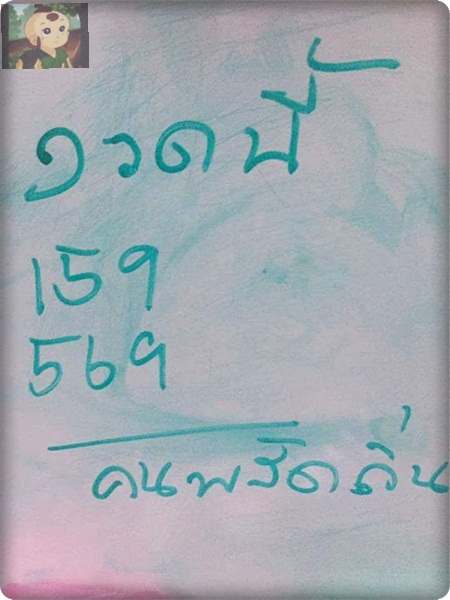 งวดนี้
159
569
คนพลัดถิ่น